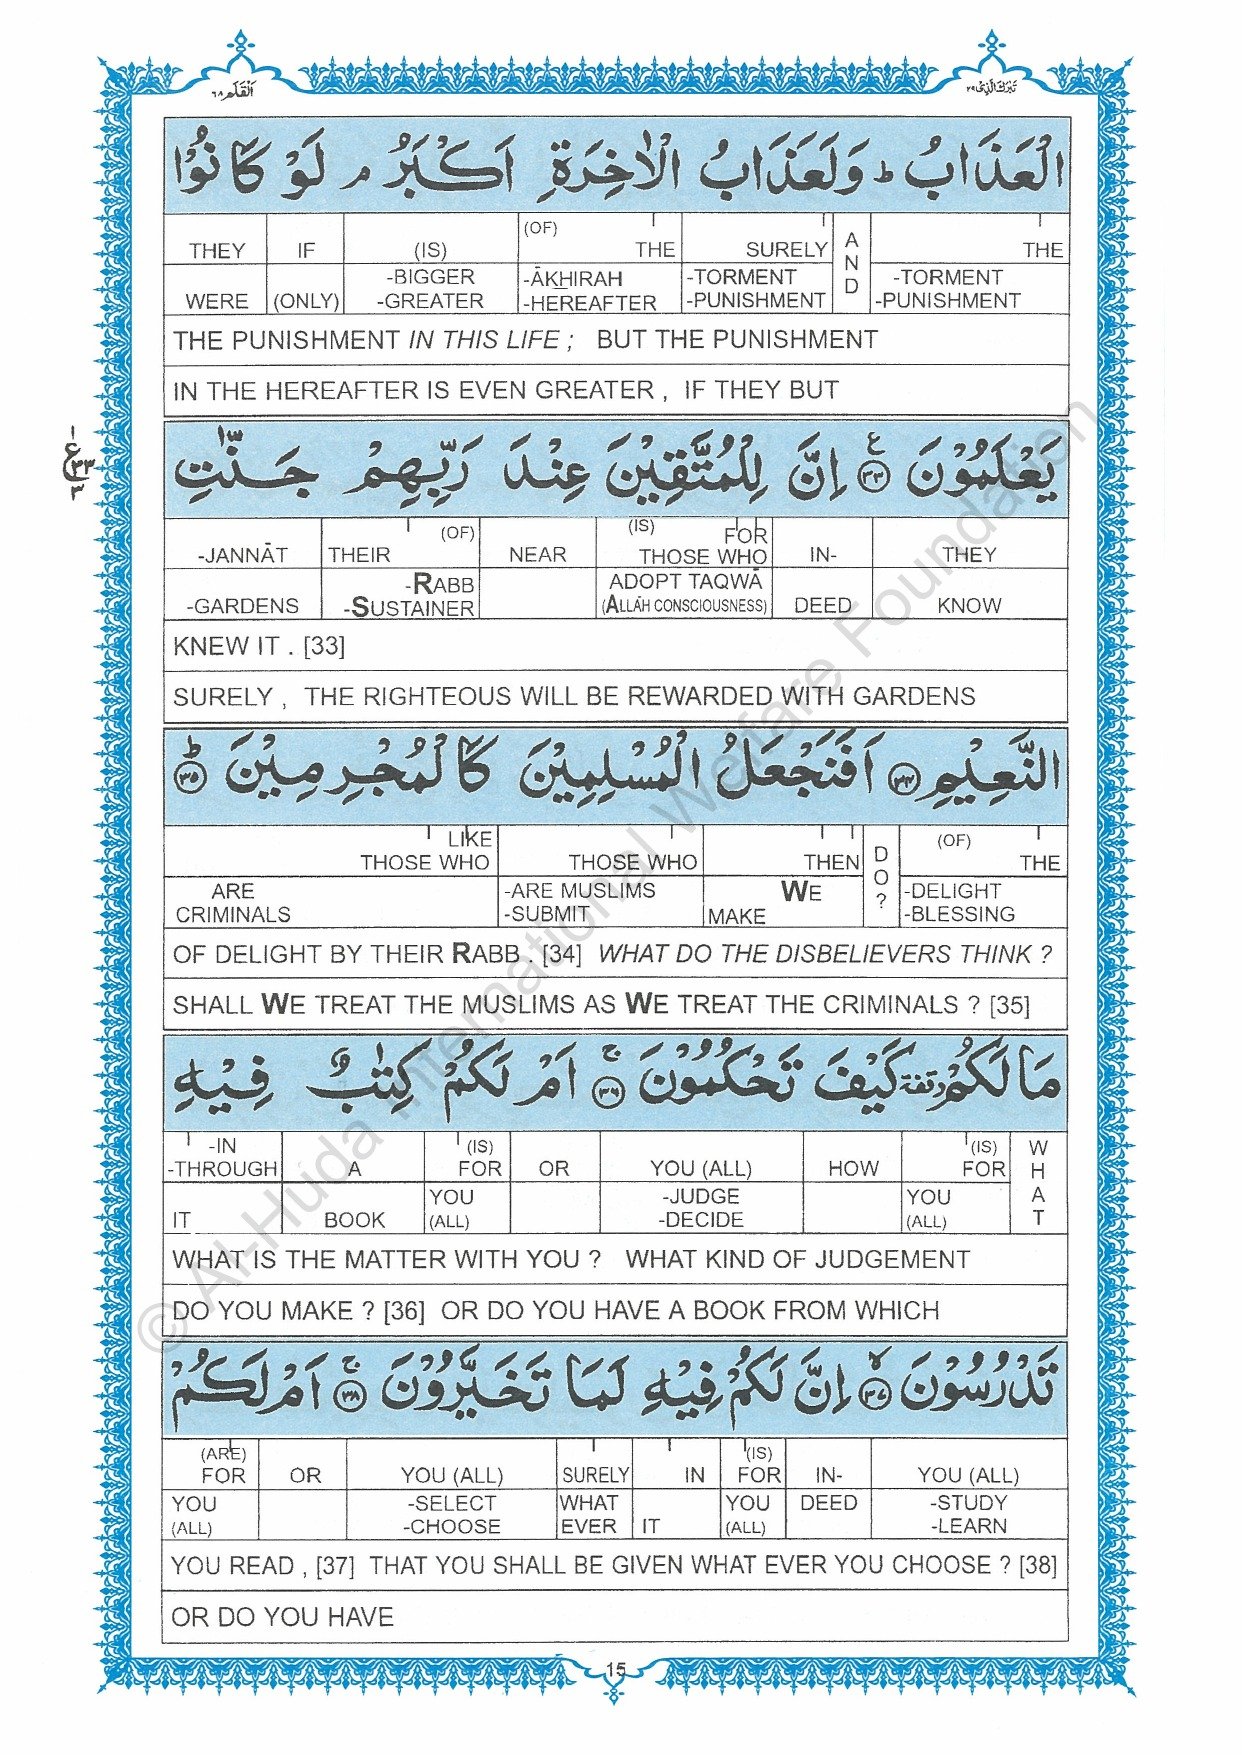 اَلْقَلَم ٦٨
تَبٰرَكَ الَّذِىْ ٢٩
الْعَذَابُ ؕ وَلَعَذَابُ الْاٰخِرَةِ اَكْبَرُ ۘ لَوْ كَانُوْا
THEY IF (IS) (OF) THE SURELY AND THE
WERE (ONLY) -BIGGER -GREATER -ĀKHIRAH -HEREAFTER -TORMENT -PUNISHMENT -TORMENT -PUNISHMENT
THE PUNISHMENT IN THIS LIFE ; BUT THE PUNISHMENT
IN THE HEREAFTER IS EVEN GREATER , IF THEY BUT
١ ع ٣٣ ٣
يَعْلَمُوْنَ ۧ ﴿٣٣﴾ اِنَّ لِلْمُتَّقِيْنَ عِنْدَ رَبِّهِمْ جَنّٰتِ
-JANNĀT THEIR (OF) NEAR (IS) FOR THOSE WHO IN- THEY
-GARDENS -RABB -SUSTAINER ADOPT TAQWĀ (ALLĀH CONSCIOUSNESS) DEED KNOW
KNEW IT . [33]
SURELY , THE RIGHTEOUS WILL BE REWARDED WITH GARDENS
النَّعِيْمِ ﴿٣٤﴾ اَفَنَجْعَلُ الْمُسْلِمِيْنَ كَالْمُجْرِمِيْنَ ؕ ﴿٣٥﴾
LIKE THOSE WHO THOSE WHO THEN DO? (OF) THE
ARE CRIMINALS -ARE MUSLIMS -SUBMIT WE MAKE -DELIGHT -BLESSING
OF DELIGHT BY THEIR RABB . [34] WHAT DO THE DISBELIEVERS THINK ?
SHALL WE TREAT THE MUSLIMS AS WE TREAT THE CRIMINALS ? [35]
مَا لَكُمْ وقفة كَيْفَ تَحْكُمُوْنَ ۚ ﴿٣٦﴾ اَمْ لَكُمْ كِتٰبٌ فِيْهِ
-IN -THROUGH A (IS) FOR OR YOU (ALL) HOW (IS) FOR WHAT
IT BOOK YOU (ALL) -JUDGE -DECIDE YOU (ALL)
WHAT IS THE MATTER WITH YOU ? WHAT KIND OF JUDGEMENT
DO YOU MAKE ? [36] OR DO YOU HAVE A BOOK FROM WHICH
تَدْرُسُوْنَ ۙ ﴿٣٧﴾ اِنَّ لَكُمْ فِيْهِ لَمَا تَخَيَّرُوْنَ ۚ ﴿٣٨﴾ اَمْ لَكُمْ
(ARE) FOR OR YOU (ALL) SURELY IN (IS) FOR IN- YOU (ALL)
YOU (ALL) -SELECT -CHOOSE WHAT EVER IT YOU (ALL) DEED -STUDY -LEARN
YOU READ , [37] THAT YOU SHALL BE GIVEN WHAT EVER YOU CHOOSE ? [38]
OR DO YOU HAVE
15
© Al-Huda International Welfare Foundation